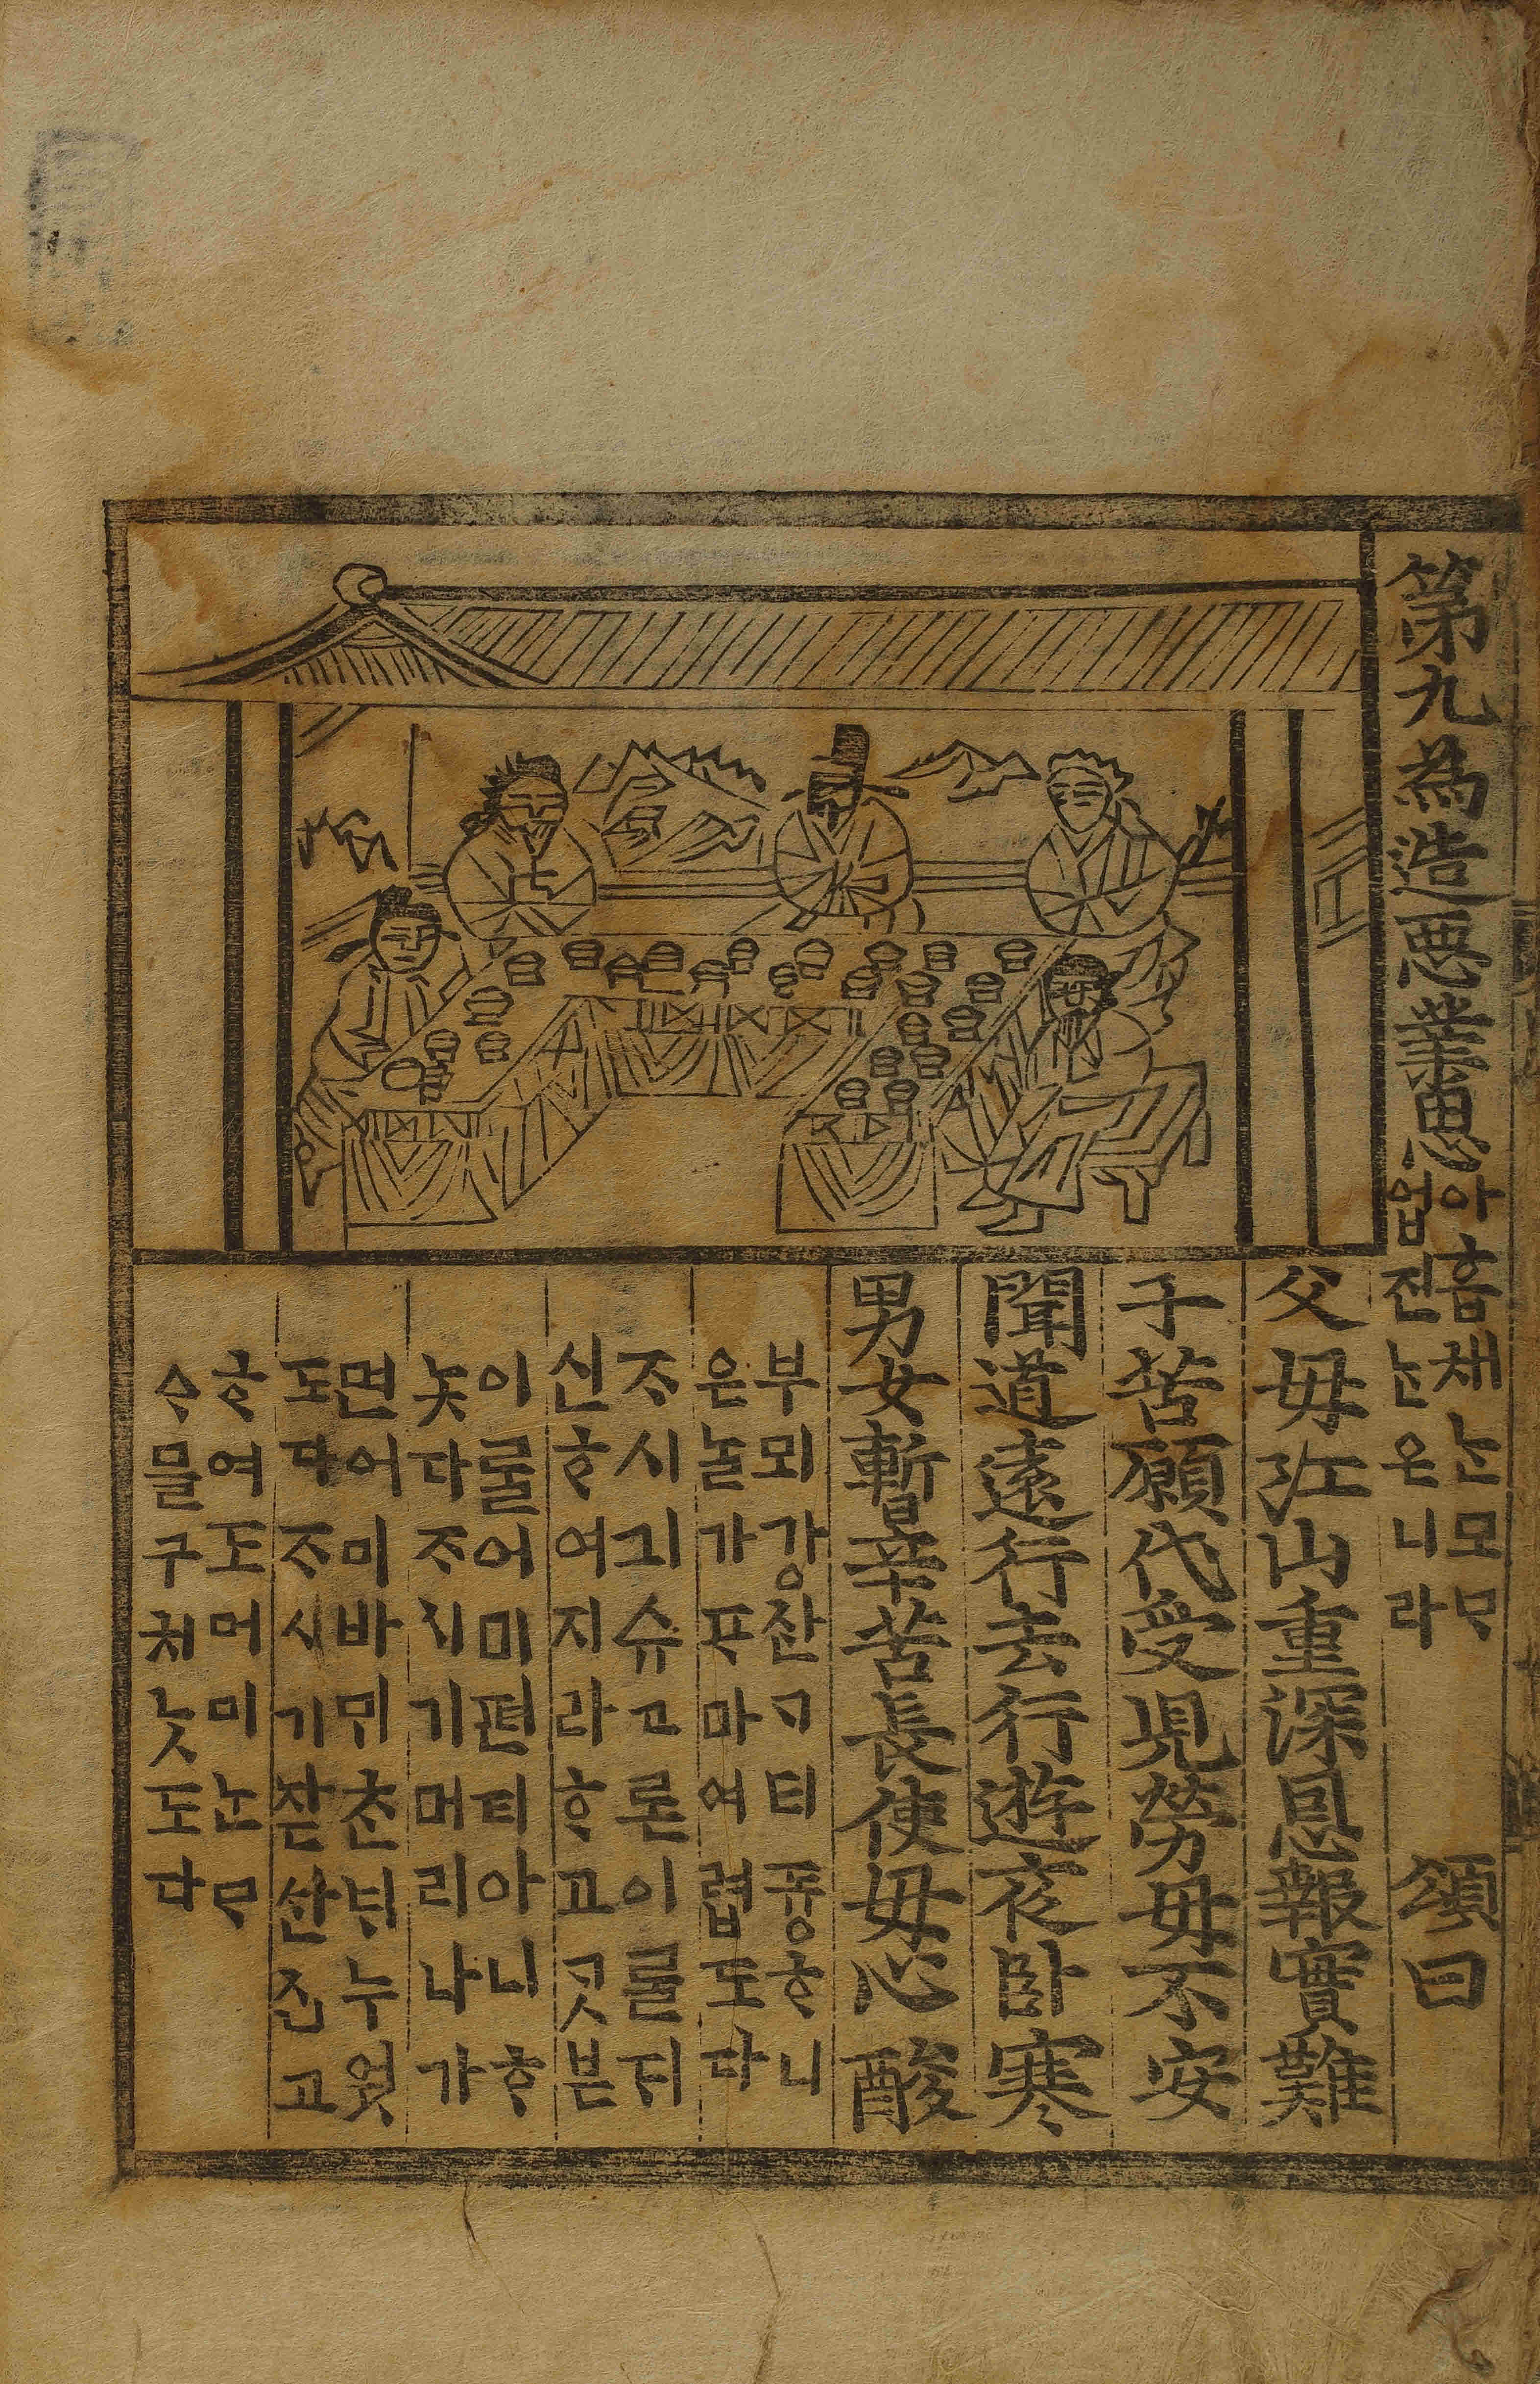 第九為造悪業恩
아홉채ᄂᆞᆫ모ᄆᆞ
업진ᄂᆞᆫ온니라
頌曰
父母江山重深恩報實難
子苦願代受児勞母不安
聞道遠行去行遊夜卧寒
男女暫辛苦長使母心酸
부뫼강잔ᄀᆞ티 ᄒᆞ니
은놀가ᄑᆞ마여렵도다
ᄌᆞ시긔슈고론이룰ᄃᆡ
신ᄒᆞ여지라ᄒᆞ고ᄀᆞᆺ븓
이룰어미편티아니ᄒᆞ
놋다ᄌᆞ시기머리나가
면어미바ᄆᆡᄎᆞᆫᄃᆡ누엇
도다ᄌᆞ시기잗산진고
ᄒᆞ여도머미ᄂᆞᆫᄆᆞ
ᄉᆞ믈구쳐ᄂᆞᆺ도다